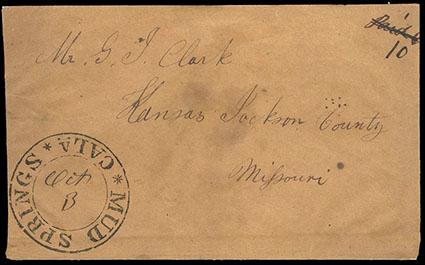 Paid
10
Mr. G. J. Clark
Kansas Jackson County
Missouri
MUD SPRINGS * CALA *
Oct
13